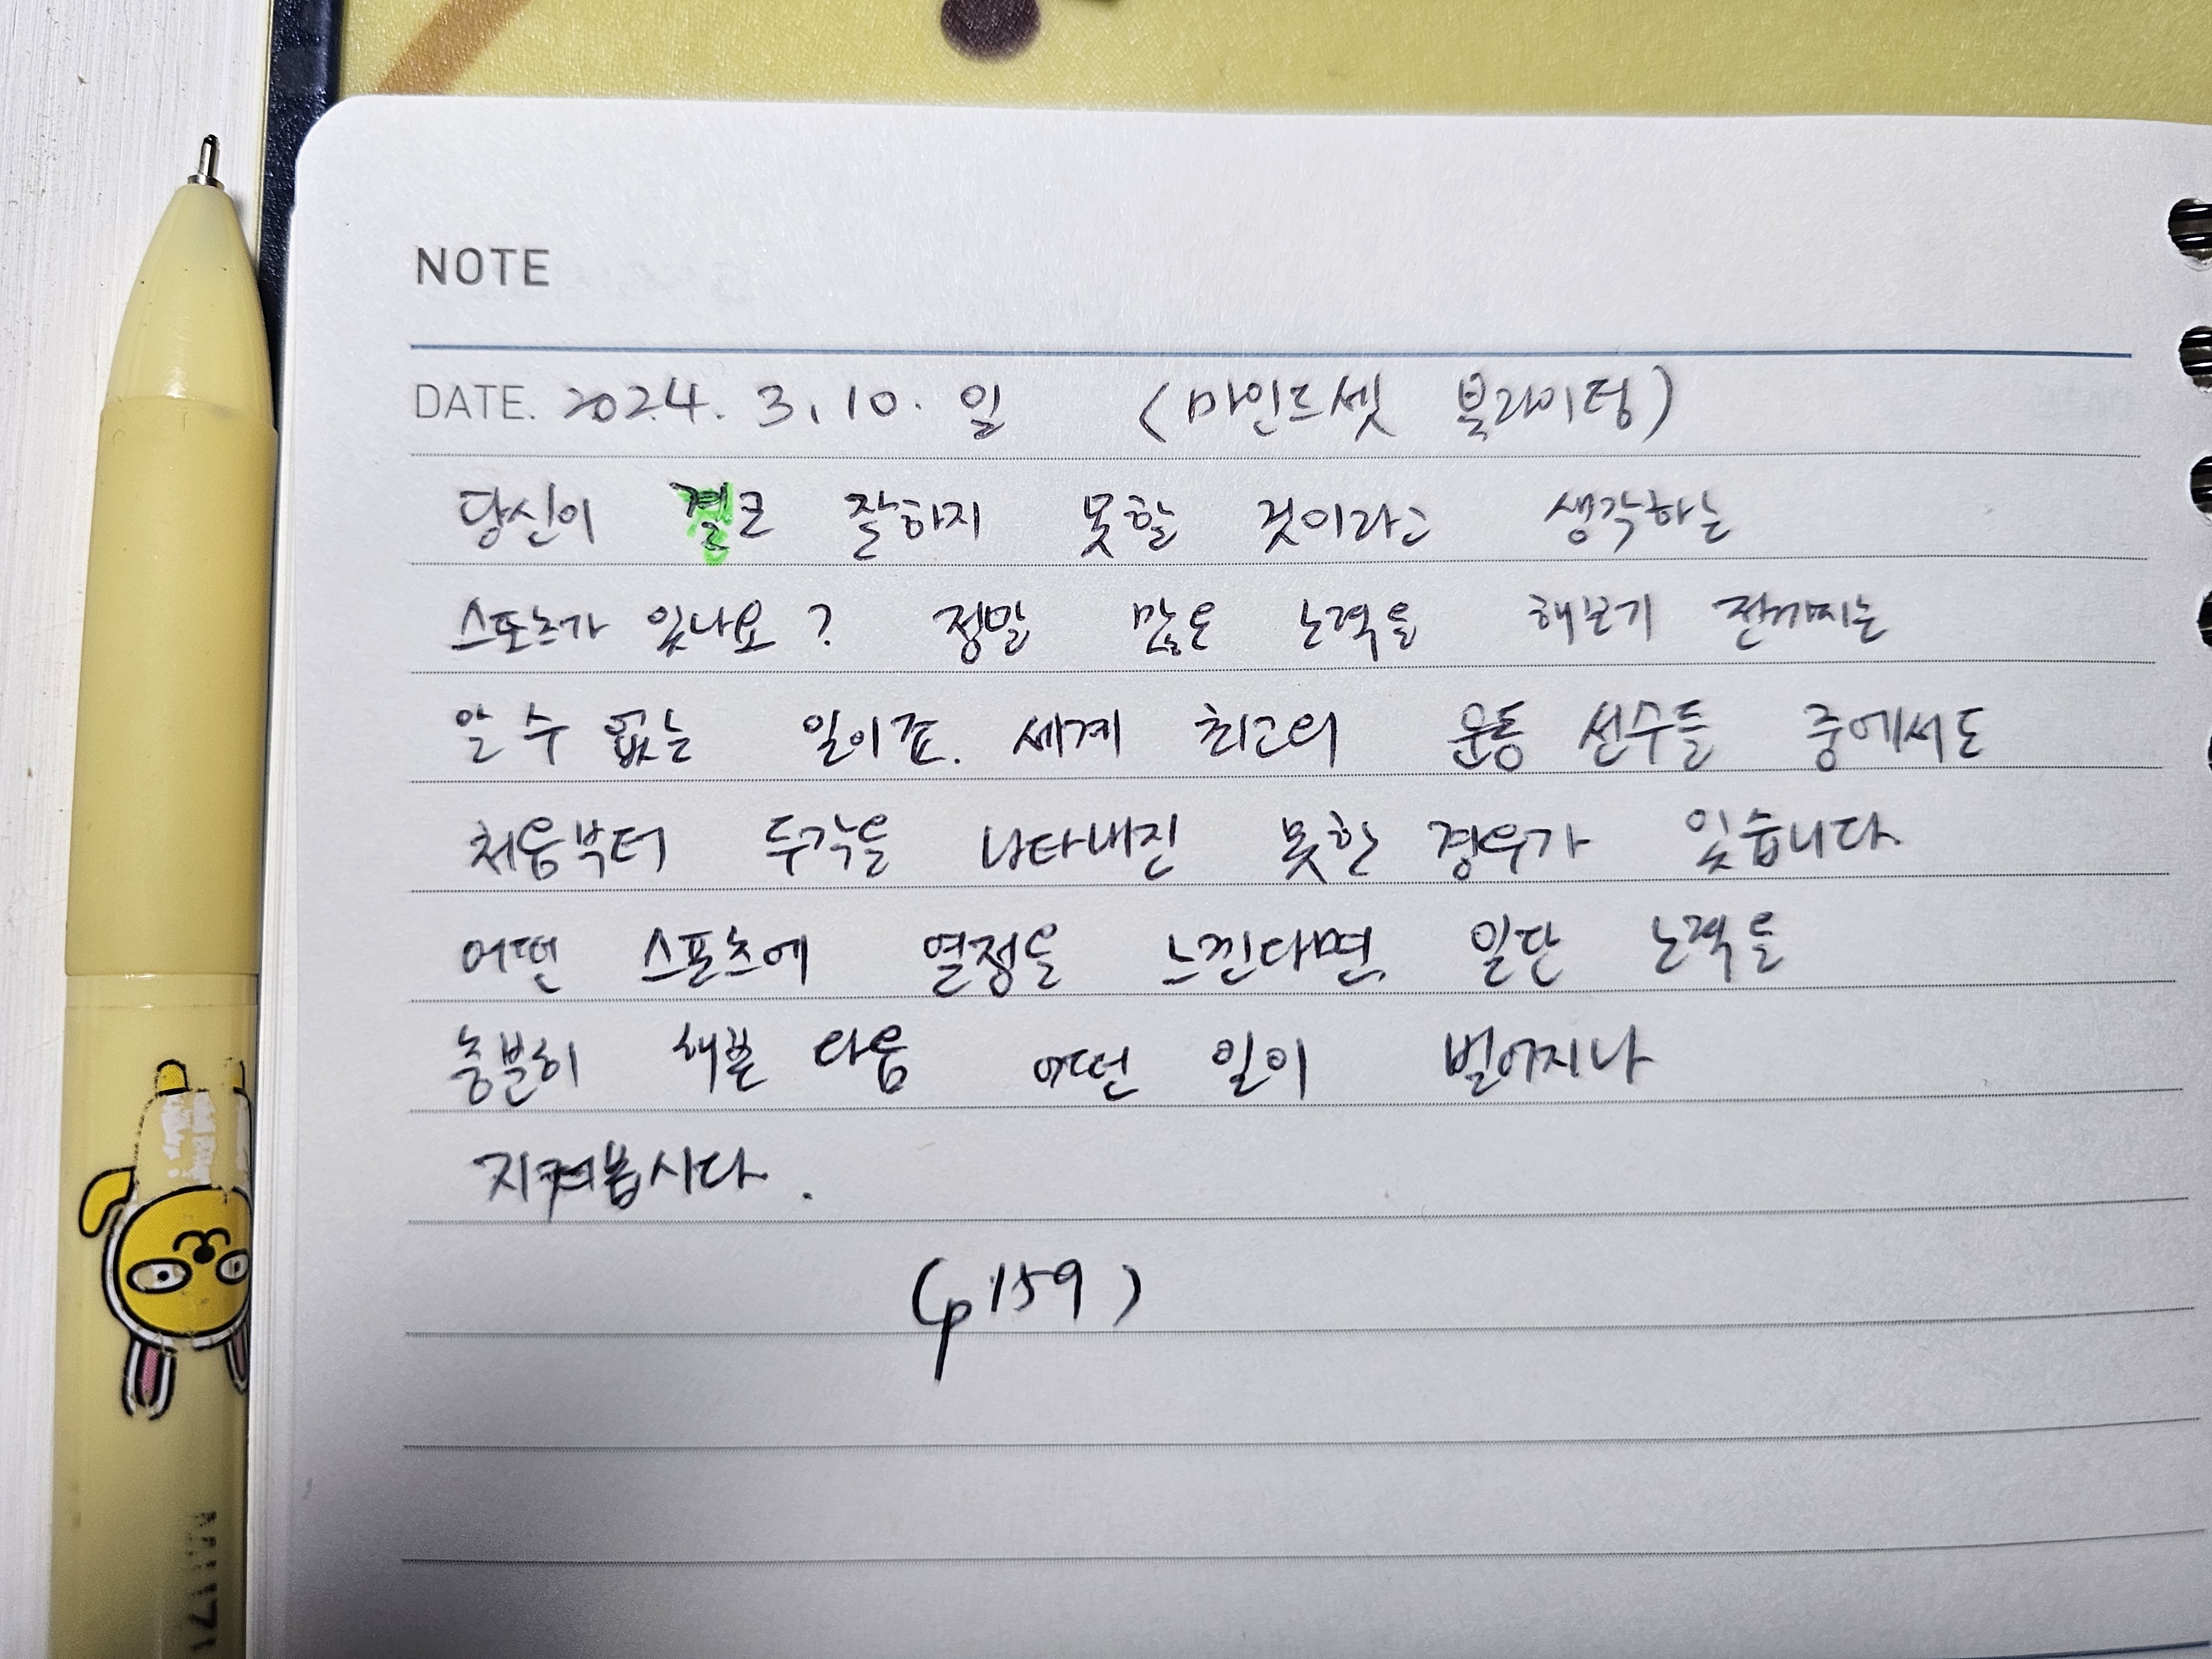 NOTE
DATE. 2024. 3. 10. 일 (마인드셋 북라이팅)
당신이 결코 잘하지 못할 것이라고 생각하는
스포츠가 있나요? 정말 많은 노력을 해보기 전까지는
알 수 없는 일이죠. 세계 최고의 운동 선수들 중에서도
처음부터 두각을 나타내진 못한 경우가 있습니다.
어떤 스포츠에 열정을 느낀다면, 일단 노력을
충분히 해본 다음 어떤 일이 벌어지나
지켜봅시다.
(p159)